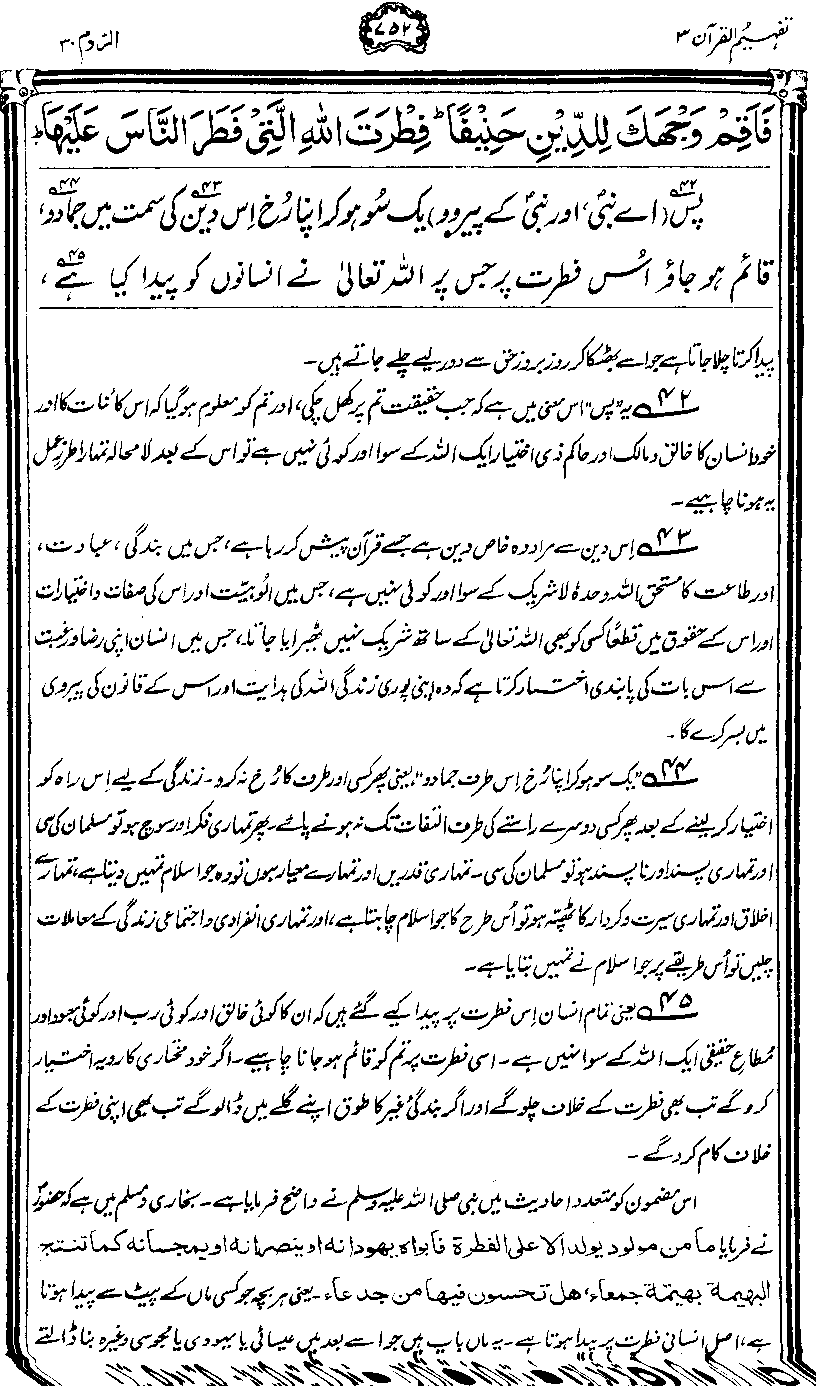 تفہیم القرآن ۳
۷۵۲
الروم ۳۰
فَاَقِمْ وَجْهَكَ لِلدِّيْنِ حَنِيْفًا ؕ فِطْرَتَ اللهِ الَّتِيْ فَطَرَ النَّاسَ عَلَيْهَا ؕ
پس۴۲ (اے نبیؐ، اور نبیؐ کے پیروو) یک سُو ہو کر اپنا رُخ اِس دین۴۳ کی سمت میں جمادو۴۴،
قائم ہو جاؤ اُس فطرت پر جس پر اللہ تعالیٰ نے انسانوں کو پیدا کیا ہے۴۵،
پیدا کرتا چلا جاتا ہے جو اسے بھٹکا کر روز بروز حق سے دور لیے چلے جاتے ہیں۔
۴۲ یہ ”پس“ اس معنی میں ہے کہ جب حقیقت تم پر کھل چکی، اور تم کو معلوم ہوگیا کہ اس کائنات کا اور
خود انسان کا خالق و مالک اور حاکم ذی اختیار ایک اللہ کے سوا اور کوئی نہیں ہے تو اس کے بعد لا محالہ تمہارا طرزِ عمل
یہ ہونا چاہیے۔
۴۳ اِس دین سے مراد وہ خاص دین ہے جسے قرآن پیش کر رہا ہے، جس میں بندگی، عبادت،
اور طاعت کا مستحق اللہ وحدہٗ لا شریک کے سوا اور کوئی نہیں ہے، جس میں الُوہیّت اور اس کی صفات و اختیارات
اور اس کے حقوق میں قطعاً کسی کو بھی اللہ تعالیٰ کے ساتھ شریک نہیں ٹھیرایا جاتا، جس میں انسان اپنی رضا و رغبت
سے اس بات کی پابندی اختیار کرتا ہے کہ وہ اپنی پوری زندگی اللہ کی ہدایت اور اس کے قانون کی پیروی
میں بسر کرے گا۔
۴۴ ”یک سو ہو کر اپنا رُخ اِس طرف جمادو“، یعنی پھر کسی اور طرف کا رُخ نہ کرو۔ زندگی کے لیے اِس راہ کو
اختیار کر لینے کے بعد پھر کسی دوسرے راستے کی طرف التفات تک نہ ہونے پائے۔ پھر تمہاری فکر اور سوچ ہو تو مسلمان کی سی
اور تمہاری پسند اور ناپسند ہو تو مسلمان کی سی۔ تمہاری قدریں اور تمہارے معیار ہوں تو وہ جو اسلام تمہیں دیتا ہے، تمہارے
اخلاق اور تمہاری سیرت و کردار کا ٹھپّہ ہو تو اُس طرح کا جو اسلام چاہتا ہے، اور تمہاری انفرادی و اجتماعی زندگی کے معاملات
چلیں تو اُس طریقے پر جو اسلام نے تمہیں بتایا ہے۔
۴۵ یعنی تمام انسان اِس فطرت پر پیدا کیے گئے ہیں کہ ان کا کوئی خالق اور کوئی رب اور کوئی معبود اور
مُطاعِ حقیقی ایک اللہ کے سوا نہیں ہے۔ اسی فطرت پر تم کو قائم ہو جانا چاہیے۔ اگر خود مختاری کا رویہ اختیار
کرو گے تب بھی فطرت کے خلاف چلو گے اور اگر بندگیٔ غیر کا طوق اپنے گلے میں ڈالو گے تب بھی اپنی فطرت کے
خلاف کام کرو گے۔
اس مضمون کو متعدد احادیث میں نبی صلی اللہ علیہ وسلم نے واضح فرمایا ہے۔ بخاری و مسلم میں ہے کہ حضورؐ
نے فرمایا ما من مولود یولد الا علی الفطرة فابواه یھودانه او ینصرانه او یمجسانه کما تنتج
البھیمة بھیمة جمعاء، ھل تحسون فیھا من جدعاء۔ یعنی ہر بچہ جو کسی ماں کے پیٹ سے پیدا ہوتا
ہے، اصل انسانی فطرت پر پیدا ہوتا ہے۔ یہ ماں باپ ہیں جو اسے بعد میں عیسائی یا یہودی یا مجوسی وغیرہ بنا ڈالتے